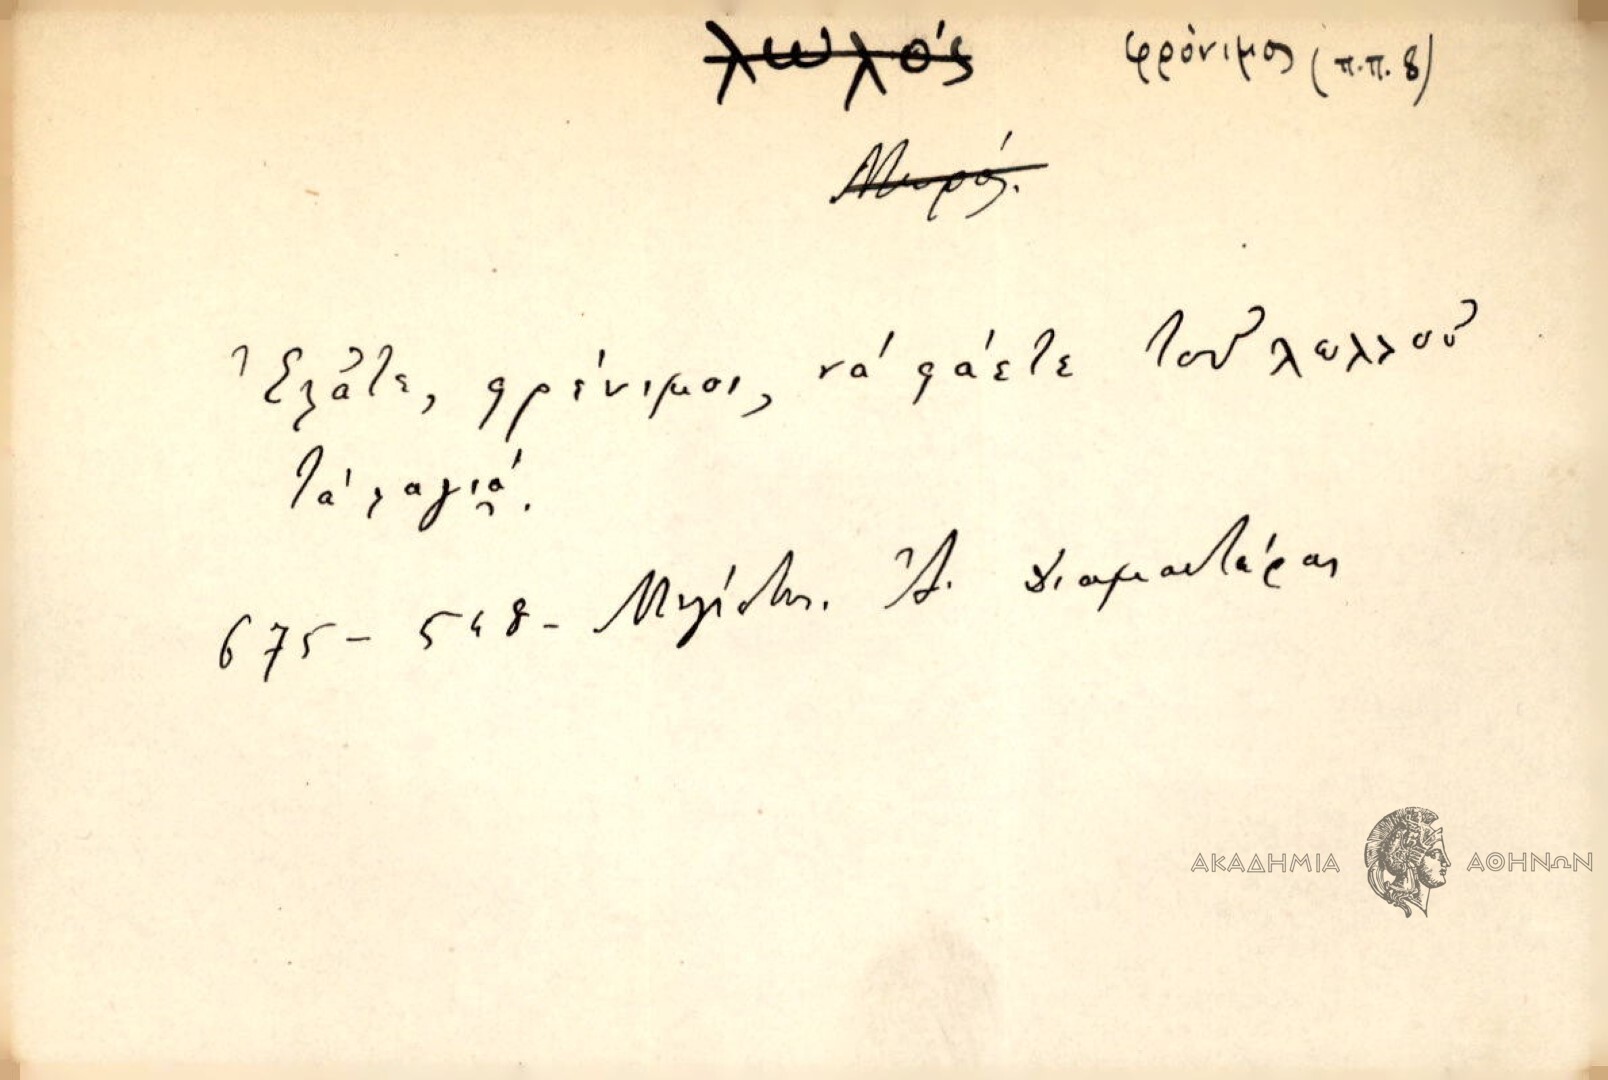 λωλός φρόνιμος (π.π. 8)
Μωρός.
Ἐλᾶτε, φρένιμοι, νά φάετε τοῦ λωλλοῦ
τά λαγιά.
675 – 548 – Μεγίστη. Ἀ. Διαμαντάρας
ΑΚΑΔΗΜΙΑ ΑΘΗΝΩΝ